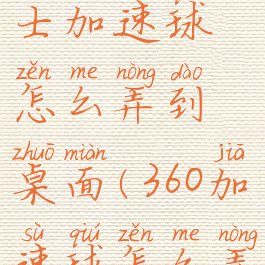 士加速球
zěn me nòng dào
怎么弄到
zhuō miàn jiā
桌面(360加
sù qiú zěn me nòng
速球怎么弄